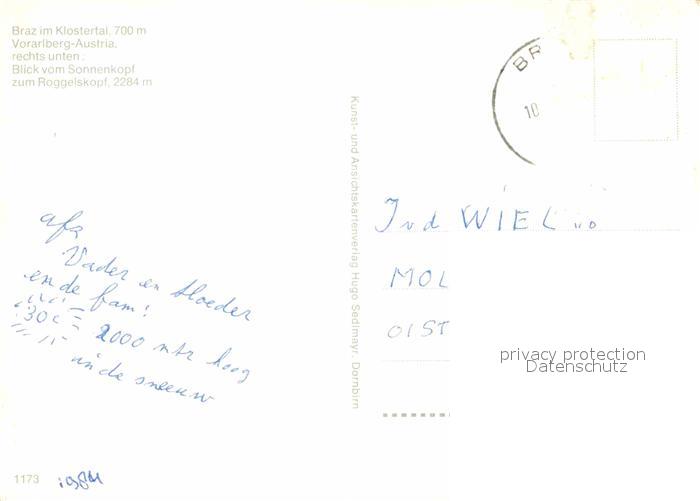 Braz im Klostertal, 700 m
Vorarlberg-Austria.
rechts unten:
Blick vom Sonnenkopf
zum Roggelskopf, 2284 m
BR
10
Kunst- und Ansichtskartenverlag Hugo Sedlmayr, Dornbirn
afz
Vader en Moeder
en de fam!
30c = 2000 mtr hoog
in de sneeuw
Jvd WIEL
MOL
OIST
privacy protection
Datenschutz
1173
1984